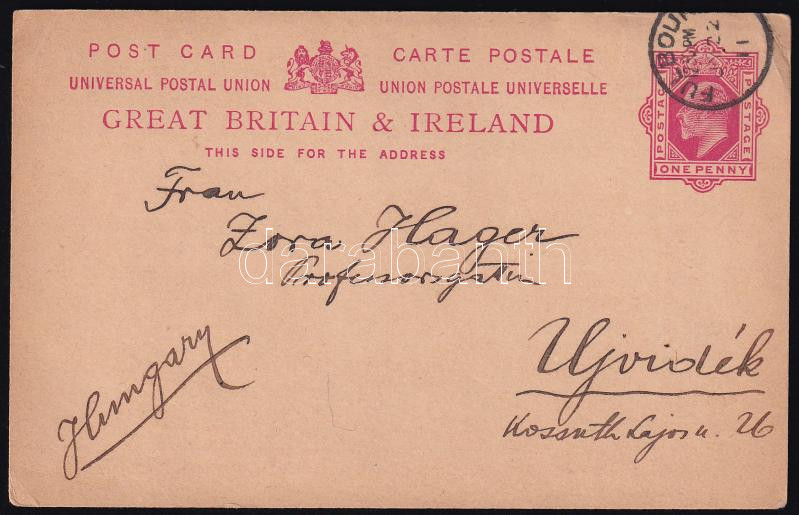 POST CARD CARTE POSTALE
UNIVERSAL POSTAL UNION UNION POSTALE UNIVERSELLE
GREAT BRITAIN & IRELAND
THIS SIDE FOR THE ADDRESS
POSTAGE POSTAGE
ONE PENNY
Frau
Zora Hager
Professorsgattin
darabanth
Ujvidék
Kossuth Lajos u. 26
Hungary